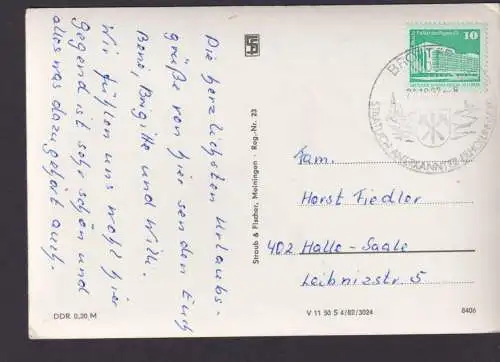 Die herzlichsten Urlaubs-
grüße von hier senden Euch
Beni, Brigitte und Willi.
Wir fühlen uns wohl hier
Gegend ist sehr schön und
alles was dazugehört auch.
DDR 0,20 M
Straub & Fischer, Meiningen · Reg.-Nr. 23
10
STAATLICH ANERKANNTER ERHOLUNGSORT
Fam.
Horst Fiedler
402 Halle-Saale
Leibnizstr. 5
V 11 50 S 4/82/3024
8406